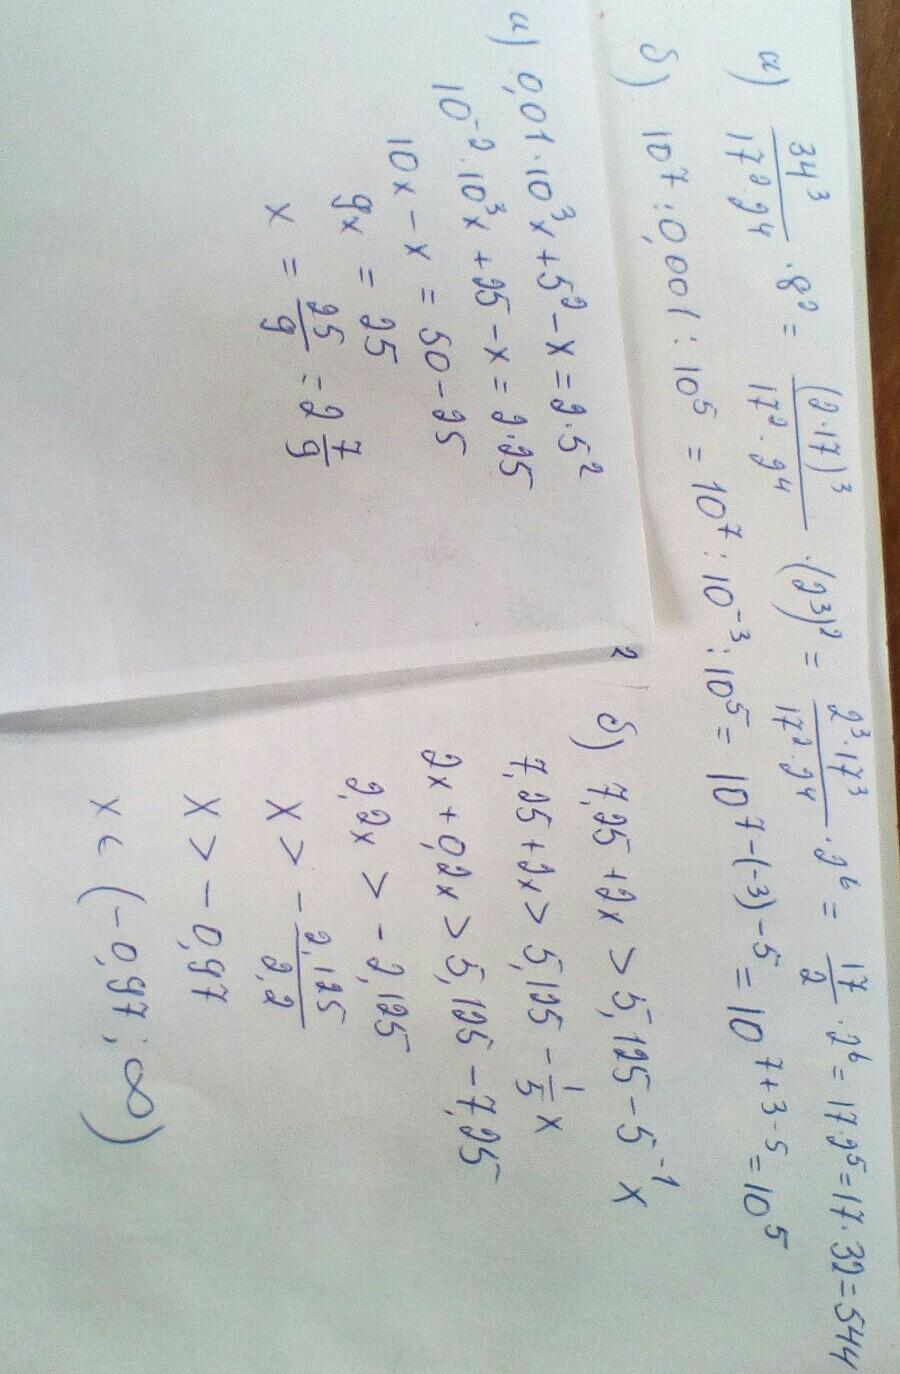 а) \frac{34^3}{17^2·2^4} · 8^2 = \frac{(2·17)^3}{17^2·2^4} · (2^3)^2 = \frac{2^3·17^3}{17^2·2^4} · 2^6 = \frac{17}{2} · 2^6 = 17·2^5 = 17·32 = 544
б) 10^7 : 0,001 : 10^5 = 10^7 : 10^{-3} : 10^5 = 10^{7-(-3)-5} = 10^{7+3-5} = 10^5
а) 0,01·10^3x + 5^2 - x = 2·5^2
10^{-2}·10^3x + 25 - x = 2·25
10x - x = 50 - 25
9x = 25
x = \frac{25}{9} = 2\frac{7}{9}
2
б) 7,25 + 2x > 5,125 - 5^{-1}x
7,25 + 2x > 5,125 - \frac{1}{5}x
2x + 0,2x > 5,125 - 7,25
2,2x > -2,125
x > -\frac{2,125}{2,2}
x > -0,97
x ∈ (-0,97; ∞)